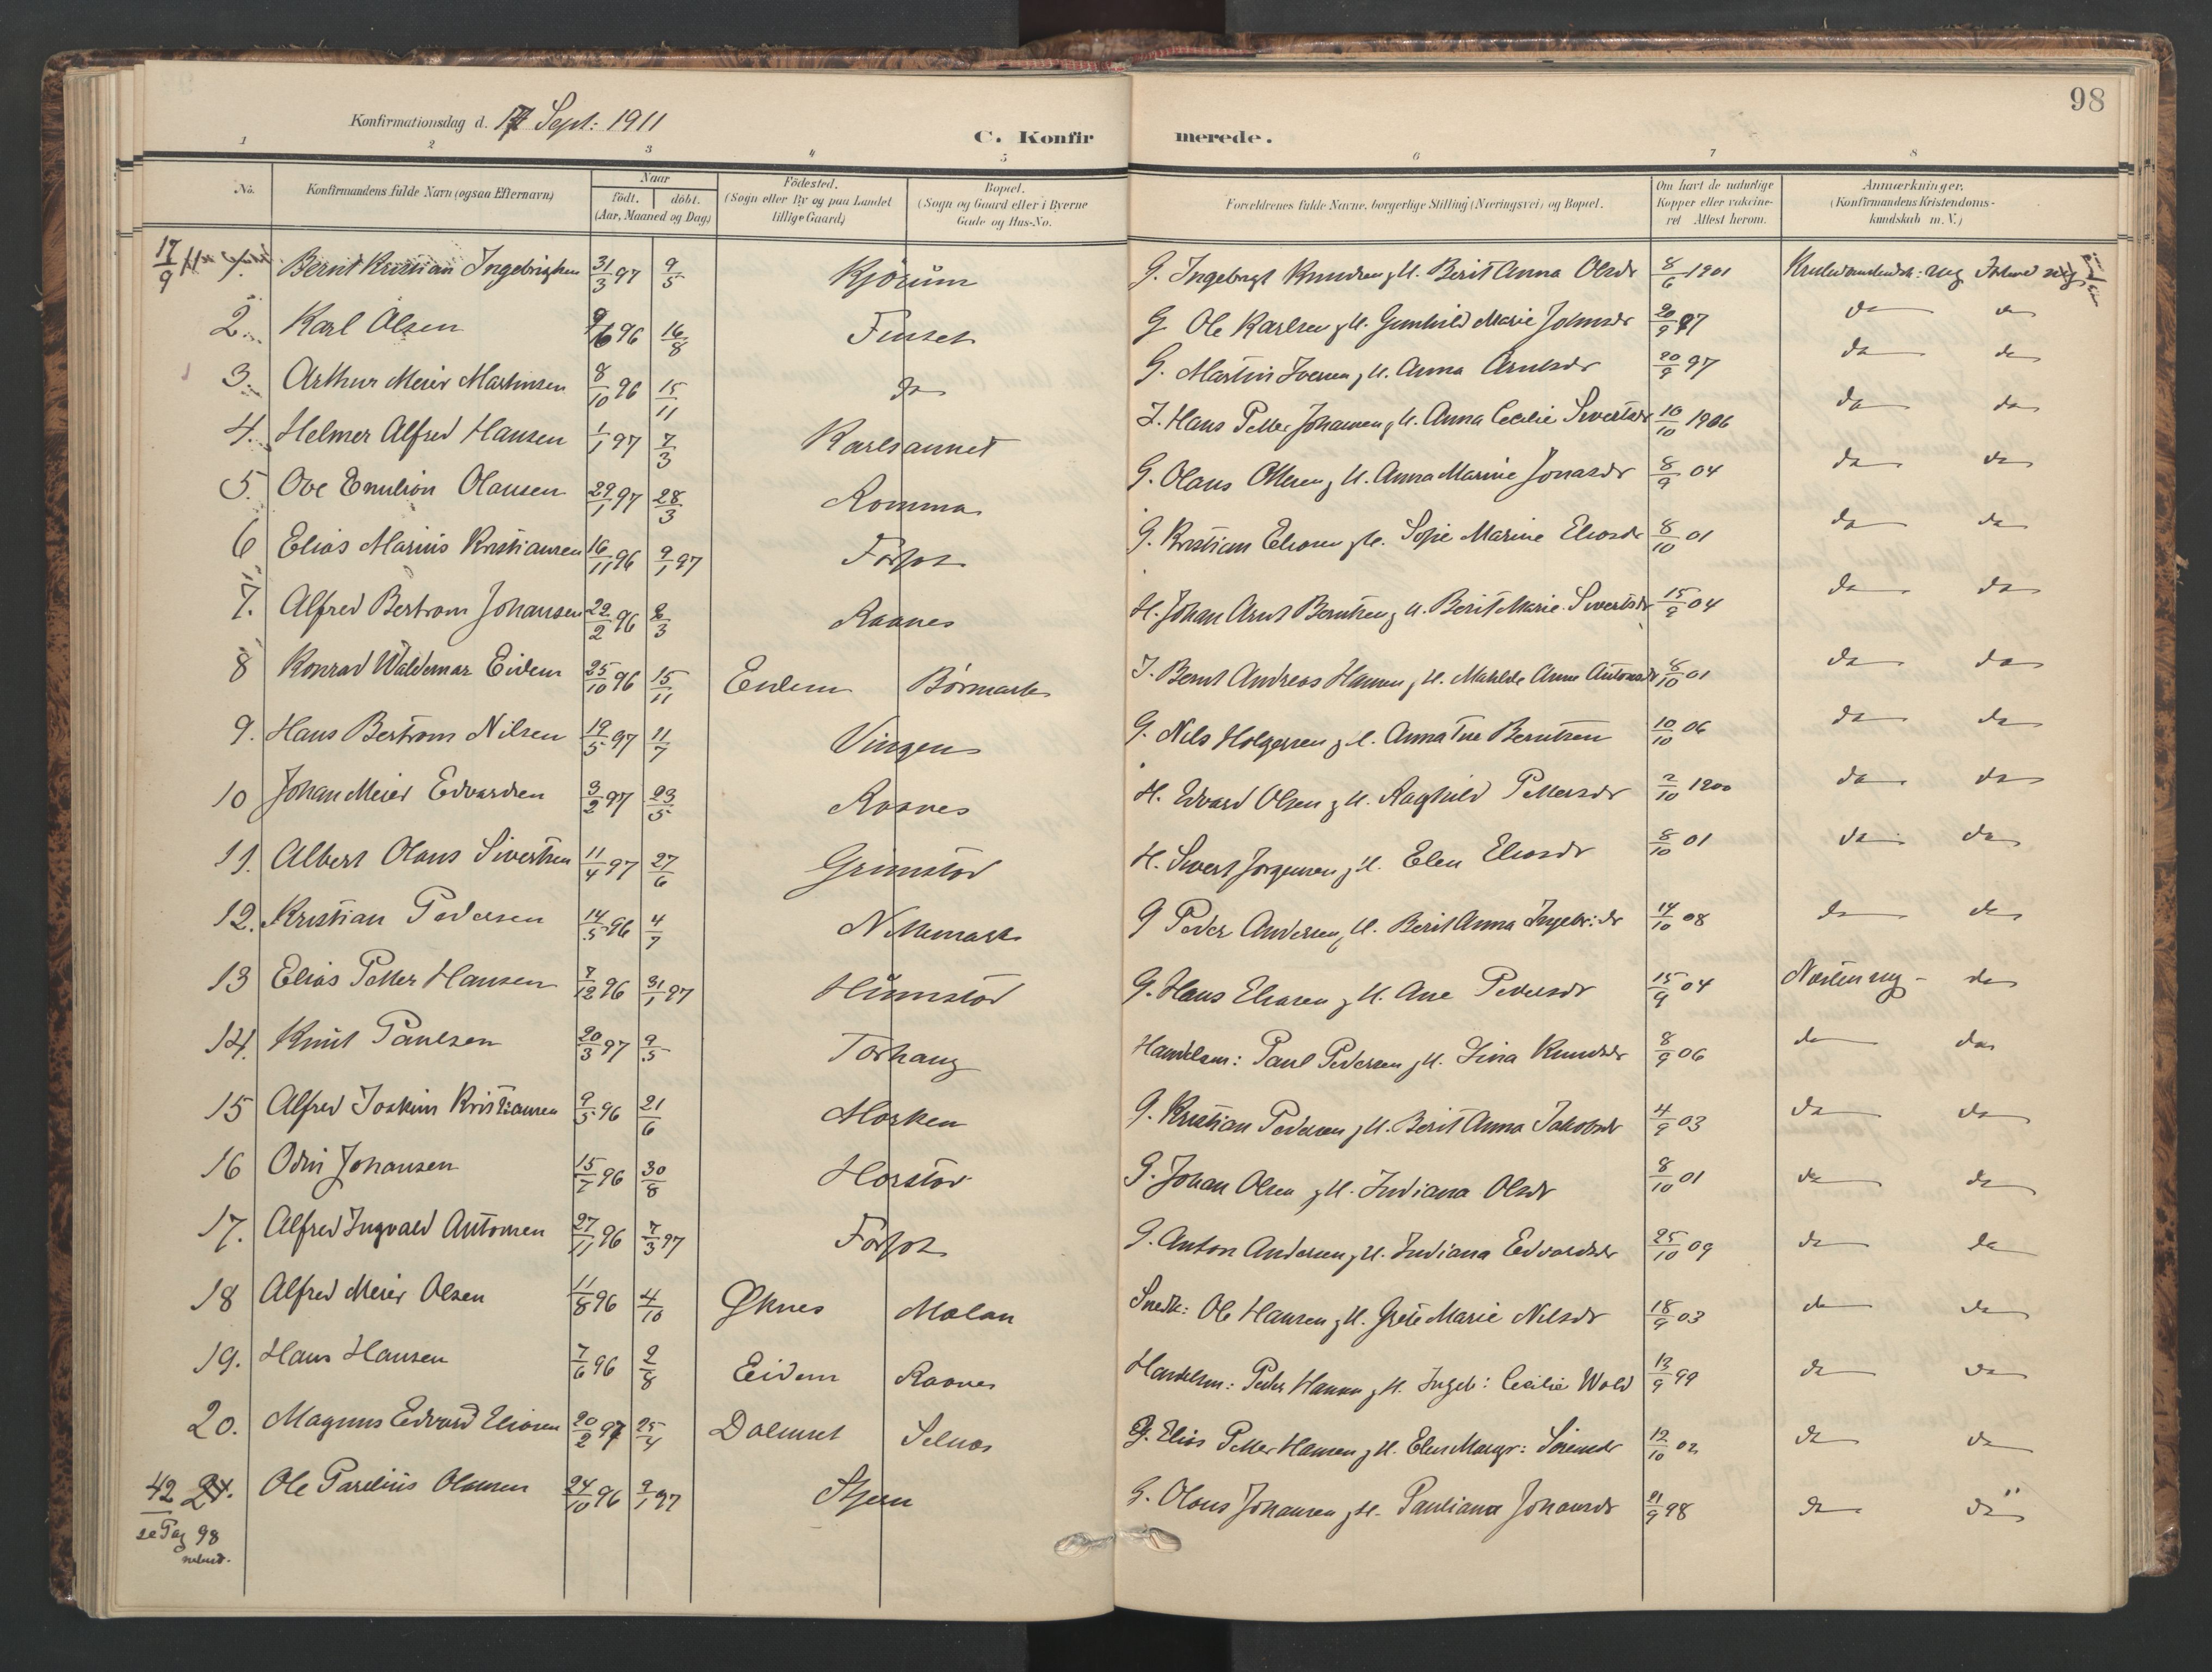 98
Konfirmationsdag d. 17 Sept: 1911
C. Konfir merede.
1 2 3 4 5 6 7 8
No. Konfirmandens fulde Navn (ogsaa Efternavn) Naar födt. döbt. (Aar, Maaned og Dag) Födested. (Sogn eller By og paa Landet tillige Gaard) Bopæl. (Sogn og Gaard eller i Byerne Gade og Hus-No. Forældrenes fulde Navne, borgerlige Stilling (Næringsvei) og Bopæl. Om havt de naturlige Kopper eller vaccineret Attest herom. Anmærkninger. (Konfirmandens Kristendomskundskab m. V.)
17/9 Bernt Kristian Ingebrigtsen 31/3 97 9/5 Kjörum G. Ingebrigt Knudsen, H. Berit Anna Olsdr 8/6 1901
2. Karl Olsen 96 16/8 Finset G. Ole Karlsen, H. Gunhild Marie Johnsdr 20/9 97 do do
3. Arthur Meier Martinsen 8/10 96 15/11 do G. Martin Iversen, H. Anna Arntsdr 20/9 97 do do
4. Helmer Alfred Hansen 1/1 97 7/3 Karlsaunet I. Hans Petter Johansen, H. Anna Cecilie Sivertsdr 10/10 1906 do do
5. Ove Emilion Olausen 29/1 97 28/3 Romma G. Olaus Olsen, H. Anna Marine Jonasdr 8/9 04 do do
6 Elias Marius Kristiansen 16/11 96 9/1 97 Forfot G. Kristian Eliasen, H. Sofie Marine Eliasdr 8/10 01 do do
7. Alfred Bertrom Johansen 22/2 96 8/3 Raanes H. Johan Arnt Berntsen, H. Berit Marie Sivertsdr 15/9 04 do do
8 Konrad Waldemar Eidem 25/10 96 15/11 Eidem Börmark I. Bernt Andreas Hansen, H. Mathilde Anna Antonsdr 8/10 01 do do
9. Hans Bertrom Nilsen 19/5 97 11/7 Vingen G. Nils Holgersen, H. Anna Tue Berntsen 10/10 06 do do
10 Johan Meier Edvardsen 3/2 97 23/5 Raanes H. Edvard Olsen, H. Raghild Pettersdr 2/10 1900 do do
11. Albert Olaus Sivertsen 11/4 97 27/6 Grimstad H. Sivert Jorgensen, H. Elen Eliasdr 8/10 01 do do
12. Kristian Pedersen 14/5 96 4/7 Nellemark G Peder Andersen, H. Berit Anna Ingebr:dr 14/10 08 do do
13 Elias Petter Hansen 7/12 96 31/1 97 Hümstad G. Hans Eliasen, H. Ane Pedersdr 15/9 04 Næsten mg - do
14. Knut Paulsen 20/3 97 9/5 Torhaug Handelsm: Paul Pedersen, H. Lina Knudsdr 8/9 06 do do
15 Alfred Joakim Kristiansen 9/5 96 21/6 Morken G. Kristian Pedersen, H. Berit Anna Jakobsdr 4/9 03 do do
16 Odin Johansen 15/7 96 30/8 Harstad G. Johan Olsen, H. Indiana Olsdr 8/10 01 do do
17. Alfred Ingvald Antonsen 27/11 96 7/3 97 Forfot G. Anton Andersen, H. Indiana Edvardsdr 25/10 09 do do
18 Alfred Meier Olsen 11/8 96 4/10 Øknes Melan Snedk: Ole Hansen, H. Grete Marie Nilsdr 18/9 03 do do
19. Hans Hansen 7/6 96 2/8 Eidem Raanes Handelsm: Peder Hansen, H. Ingeb: Cecilie Wold 13/9 99 do do
20. Magnus Edvard Eliasen 20/2 97 25/4 Dalemset Selnes G. Elias Petter Hansen, H. Elen Margr: Sörensdr 12/10 02 do do
42 21. Ole Parelius Olausen 24/10 96 9/1 97 Stjern G. Olaus Johansen, H. Pauliana Johansdr 21/9 98 do do
se Pag 98
nedenf.